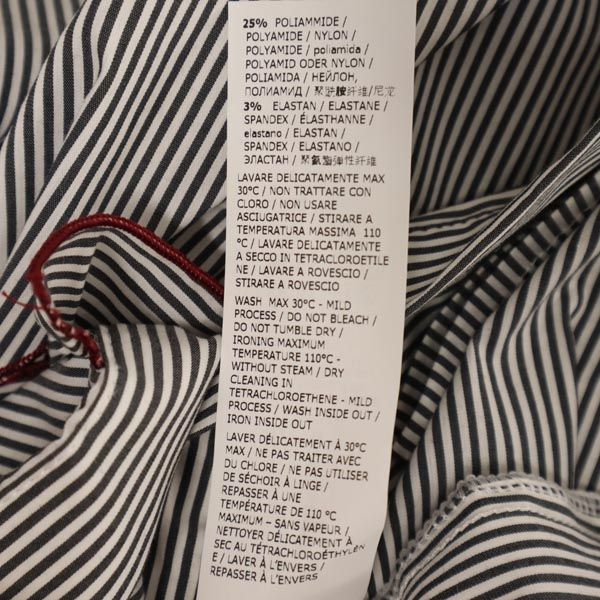 25% POLIAMMIDE /
POLYAMIDE / NYLON /
POLYAMIDE / poliamida /
POLYAMID ODER NYLON /
POLIAMIDA / НЕЙЛОН,
ПОЛИАМИД / 聚酰胺纤维/尼龙
3% ELASTAN / ELASTANE /
SPANDEX / ÉLASTHANNE /
elastano / ELASTAN /
SPANDEX / ELASTANO /
ЭЛАСТАН / 聚氨酯弹性纤维
LAVARE DELICATAMENTE MAX
30°C / NON TRATTARE CON
CLORO / NON USARE
ASCIUGATRICE / STIRARE A
TEMPERATURA MASSIMA 110
°C / LAVARE DELICATAMENTE
A SECCO IN TETRACLOROETILE
NE / LAVARE A ROVESCIO /
STIRARE A ROVESCIO
WASH MAX 30°C - MILD
PROCESS / DO NOT BLEACH /
DO NOT TUMBLE DRY /
IRONING MAXIMUM
TEMPERATURE 110°C -
WITHOUT STEAM / DRY
CLEANING IN
TETRACHLOROETHENE - MILD
PROCESS / WASH INSIDE OUT /
IRON INSIDE OUT
LAVER DÉLICATEMENT À 30°C
MAX / NE PAS TRAITER AVEC
DU CHLORE / NE PAS UTILISER
DE SÉCHOIR À LINGE /
REPASSER À UNE
TEMPÉRATURE DE 110 °C
MAXIMUM – SANS VAPEUR /
NETTOYER DÉLICATEMENT À
SEC AU TÉTRACHLOROÉTHYLÈN
E / LAVER À L'ENVERS /
REPASSER À L'ENVERS